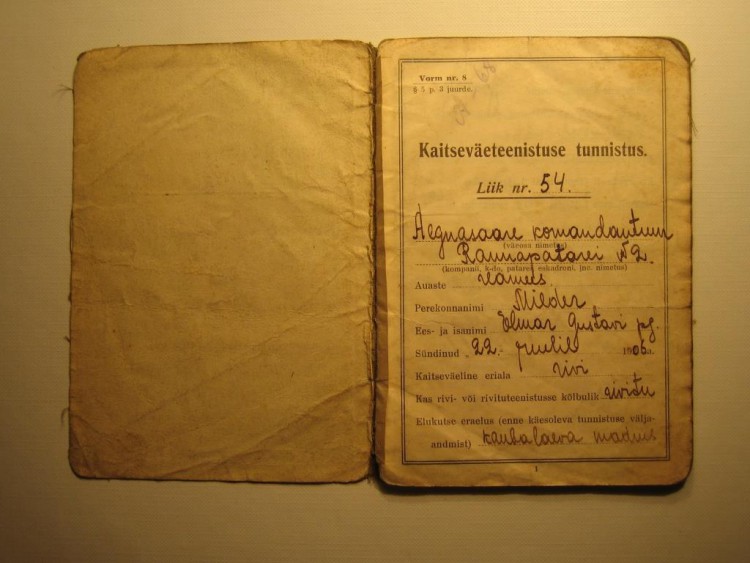 Vorm nr. 8
§ 5 p. 3 juurde.
Kaitseväeteenistuse tunnistus.
Liik nr. 54.
Aegnasaare komandantuur
(väeosa nimetus)
Rannapatarei N2.
(kompanii, k-do, patarei, eskadroni, jne. nimetus)
Auaste reamees.
Perekonnanimi Milder
Ees- ja isanimi Elmar Gustavi pg.
Sündinud „22. juulil 1906 a.
Kaitseväeline eriala rivi
Kas rivi- või rivituteenistusse kõlbulik rivitu
Elukutse eraelus (enne käesoleva tunnistuse välja-
andmist) kaubalaeva madrus
1